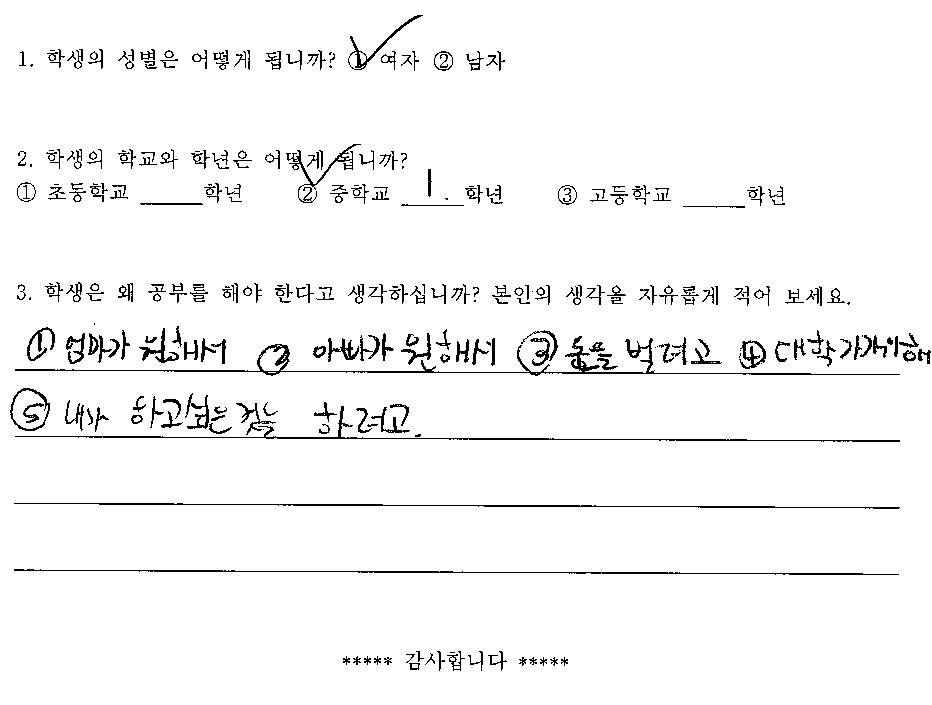 1. 학생의 성별은 어떻게 됩니까? ① 여자 ② 남자
2. 학생의 학교와 학년은 어떻게 됩니까?
① 초등학교 ______학년 ② 중학교 __1.__학년 ③ 고등학교 ______학년
3. 학생은 왜 공부를 해야 한다고 생각하십니까? 본인의 생각을 자유롭게 적어 보세요.
① 엄마가 원해서 ② 아빠가 원해서 ③ 돈을 벌려고 ④ 대학가기위해
⑤ 내가 하고싶은것을 하려고.
***** 감사합니다 *****